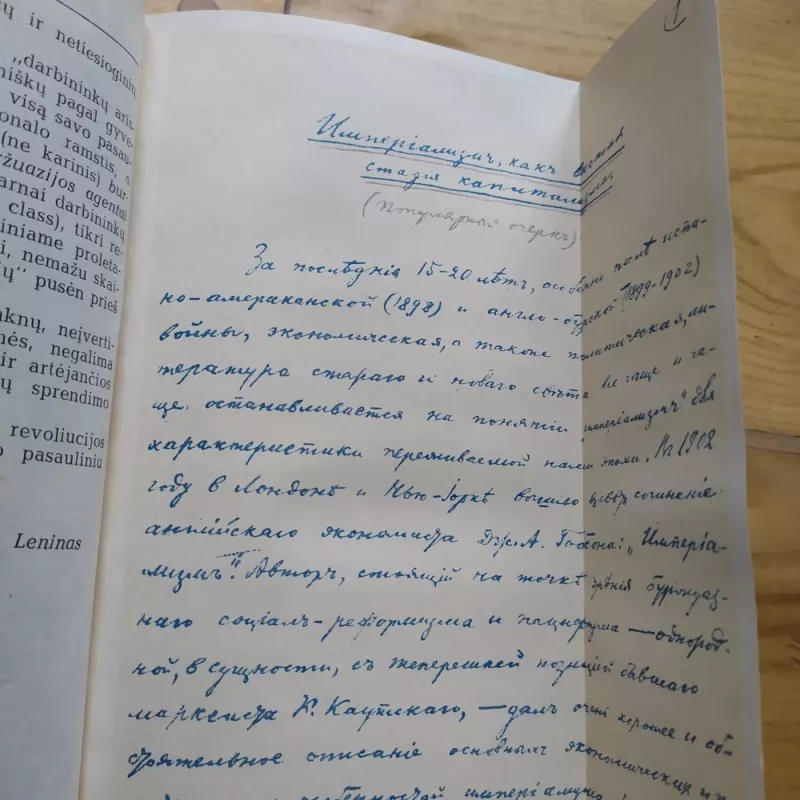 ų ir netiesioginių
„darbininkų aris-
niškų pagal gyve-
visą savo pasau-
onalo ramstis, o
(ne karinis) bur-
ržuazijos agentai
arnai darbininkų
class), tikri re-
iniame proleta-
i, nemažu skai-
ių“ pusėn prieš
aknų, neįverti-
mės, negalima
ir artėjančios
ų sprendimo
revoliucijos
o pasauliniu
Leninas
1
Имперіализмъ, какъ высшая
стадія капитализма.
(Популярный очеркъ)
За послѣднія 15-20 лѣтъ, особенно послѣ испа-
но-американской (1898) и англо-бурской (1899-1902)
войны, экономическая, а также политическая, ли-
тература стараго и новаго свѣта все чаще и ча-
ще останавливается на понятіи "имперіализмъ" для
характеристики переживаемой нами эпохи. Въ 1902
году в Лондонѣ и Нью-Іоркѣ вышло въ свѣтъ сочиненіе
англійскаго экономиста Дж. А. Гобсона: „Имперіа-
лизмъ". Авторъ, стоящій на точкѣ зрѣнія буржуаз-
наго соціалъ-реформизма и пацифизма — однород-
ной, в сущности, съ теперешней позиціей бывшаго
марксиста К. Каутскаго, — далъ очень хорошее и об-
стоятельное описаніе основныхъ экономических и п
особенностей имперіализма